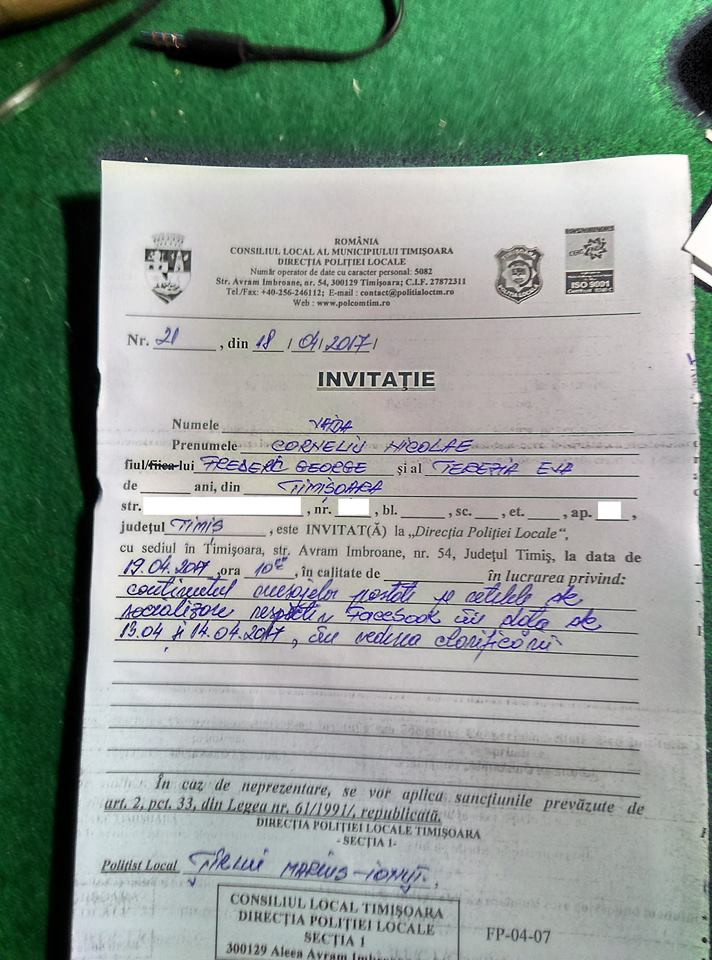 ROMÂNIA
CONSILIUL LOCAL AL MUNICIPIULUI TIMIȘOARA
DIRECȚIA POLIȚIEI LOCALE
Număr operator de date cu caracter personal: 5082
Str. Avram Imbroane, nr. 54, 300129 Timișoara; C.I.F. 27872311
Tel./Fax: +40-256-246112; E-mail : contact@politialoctm.ro
Web : www.polcomtim.ro
POLIȚIA LOCALĂ
ISO 9001
Nr. 21, din 18/04/2017/
INVITAȚIE
Numele VAIDA
Prenumele CORNELIU NICOLAE
fiul/fiica lui FREDERIC GEORGE și al TEREZIA EVA
de ani, din TIMIȘOARA
str. , nr. , bl. , sc. , et. , ap. ,
județul TIMIȘ, este INVITAT(Ă) la „Direcția Poliției Locale”,
cu sediul în Timișoara, str. Avram Imbroane, nr. 54, Județul Timiș, la data de
19.04.2017, ora 10, în calitate de în lucrarea privind:
conținutul mesajelor postate pe de
socializare respectiv Facebook în data de
13.04 și 14.04.2017, în vederea clarificării
În caz de neprezentare, se vor aplica sancțiunile prevăzute de
art. 2, pct. 33, din Legea nr. 61/1991/, republicată.
DIRECȚIA POLIȚIEI LOCALE TIMIȘOARA
- SECȚIA 1-
Polițist Local MARIUS-IONUȚ
CONSILIUL LOCAL TIMIȘOARA
DIRECȚIA POLIȚIEI LOCALE
SECȚIA 1
300129 Aleea Avram Imbroane
FP-04-07